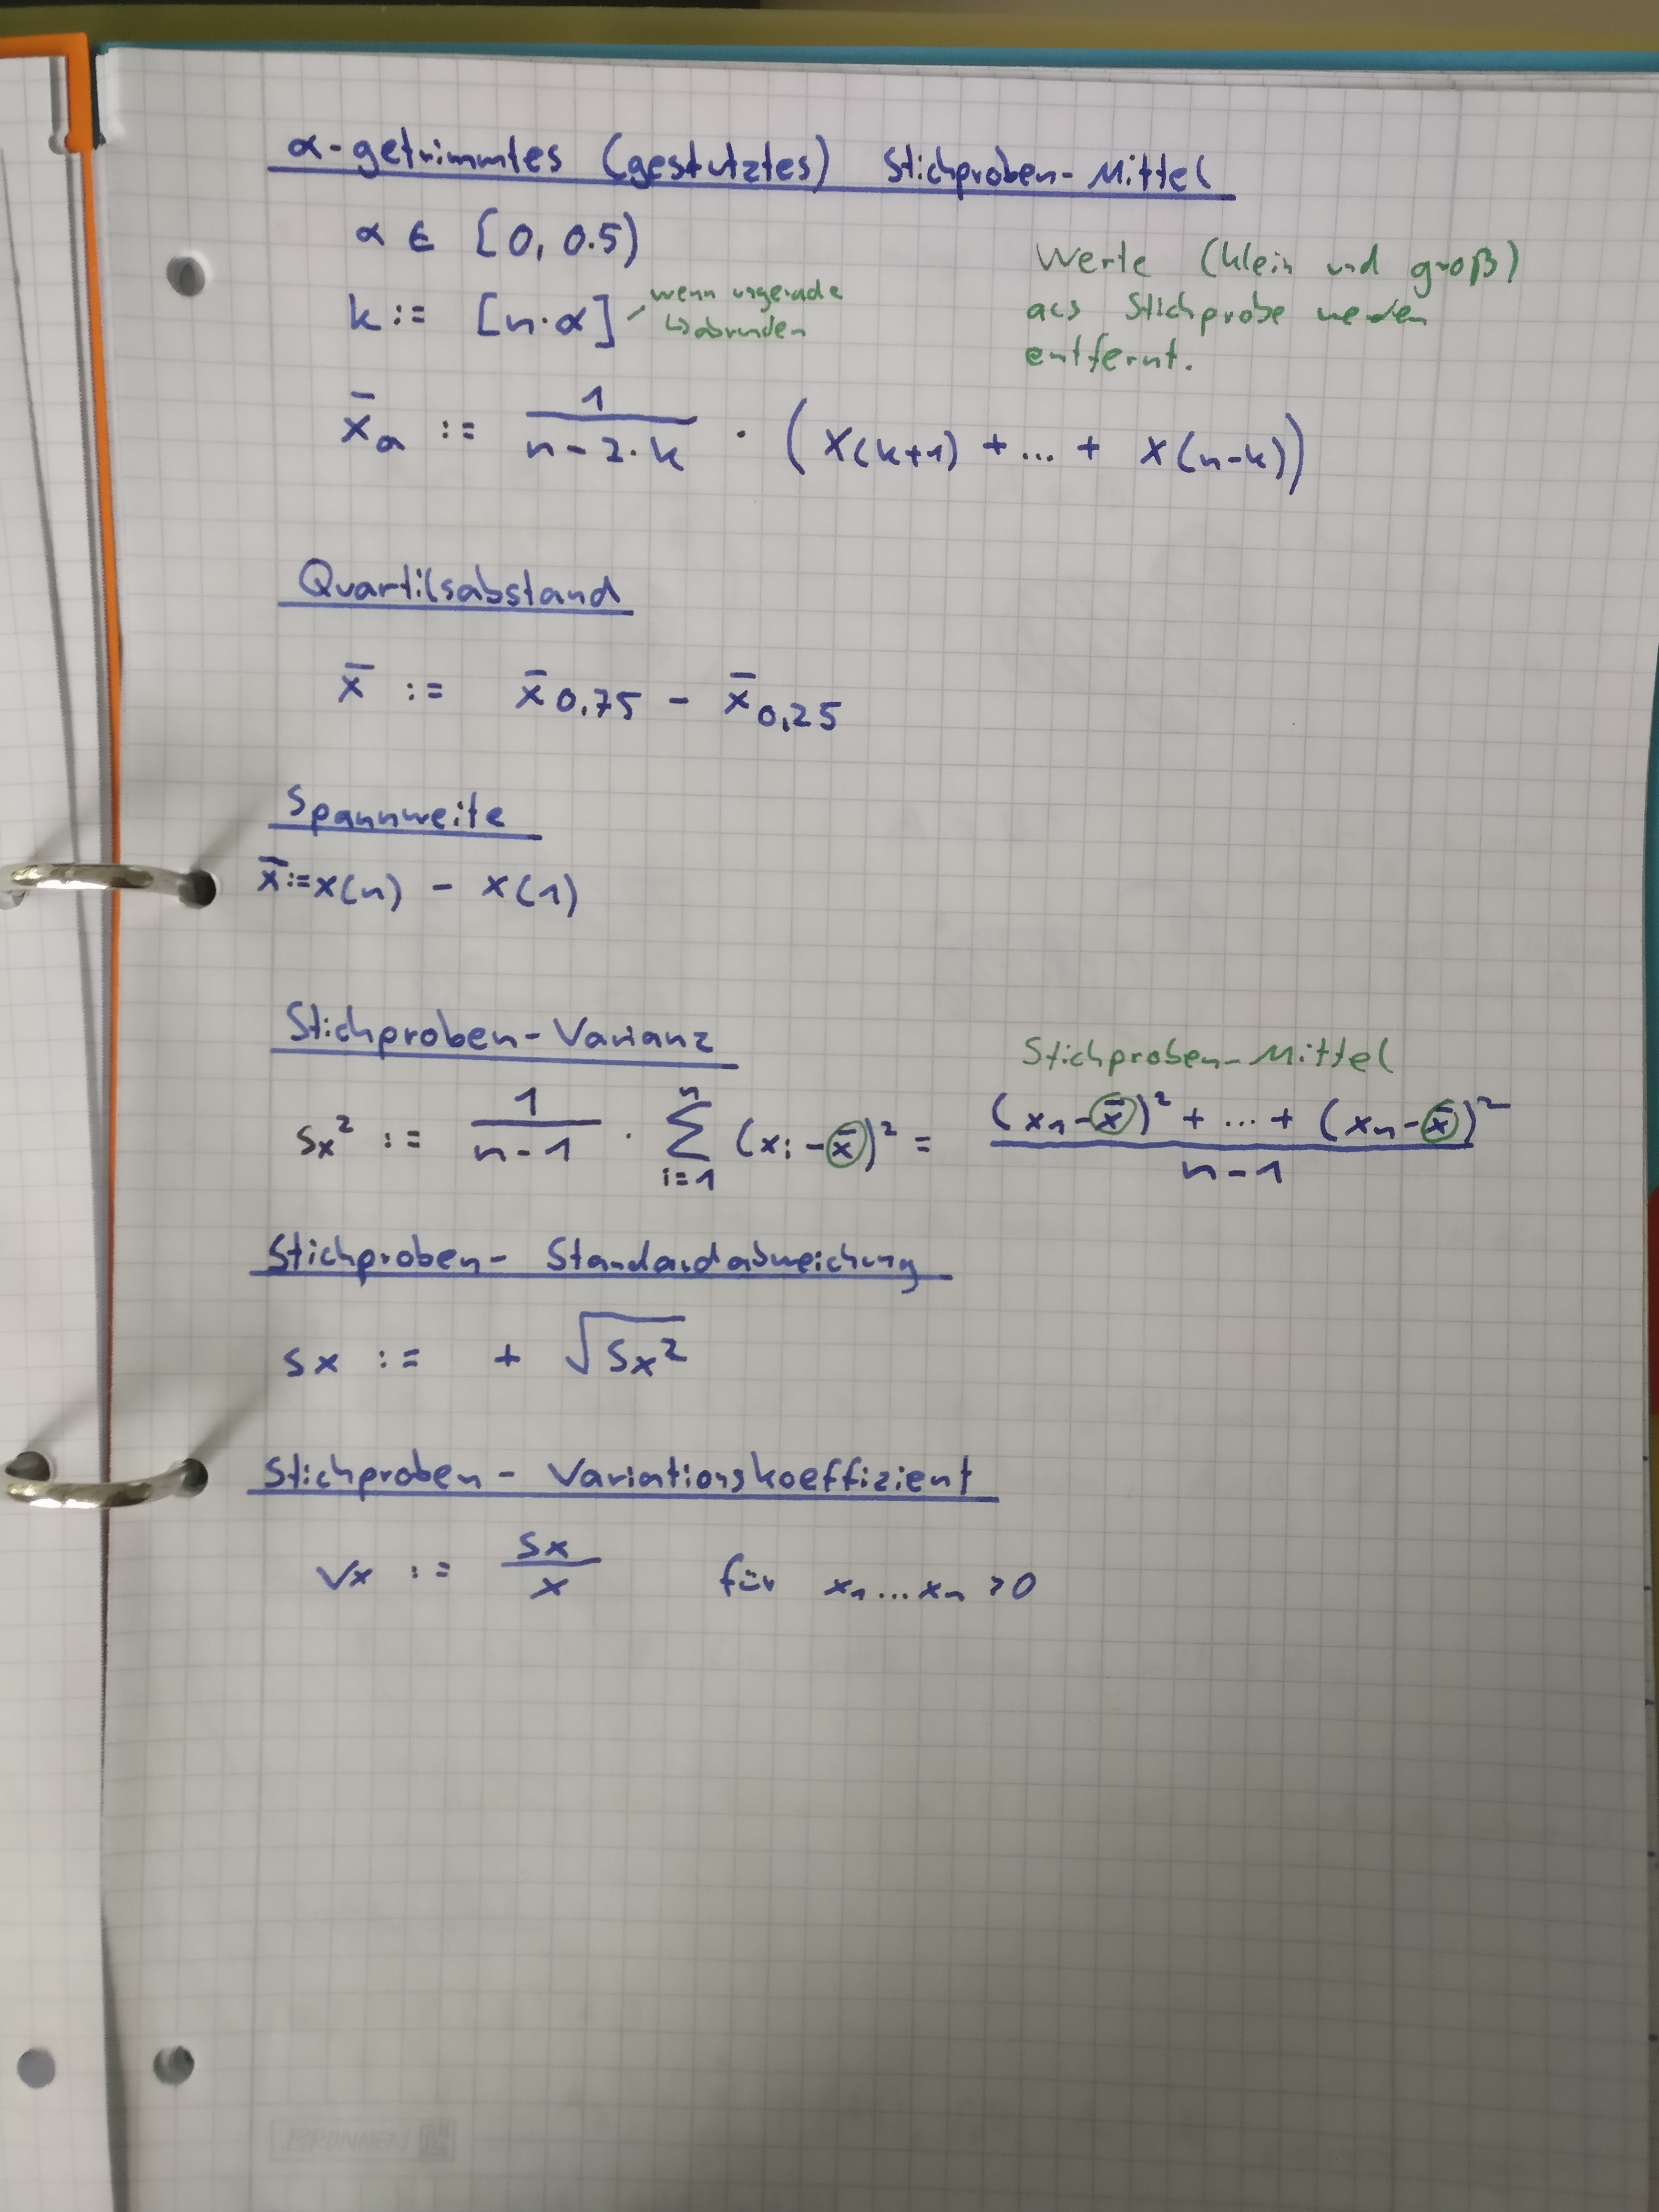 α-getrimmtes (gestutztes) Stichproben-Mittel
α ∈ [0, 0.5)
k := [n·α]
wenn ungerade
↳ abrunden
Werte (klein und groß)
aus Stichprobe werden
entfernt.
x̄a := 1/(n-2·k) · (x(k+1) + ... + x(n-k))
Quartilsabstand
x̄ := x̄0,75 - x̄0,25
Spannweite
x̄:=x(n) - x(1)
Stichproben-Varianz
Stichproben-Mittel
sx² := 1/(n-1) · ∑ⁿᵢ₌₁ (xi - x̄)² = ((x1-x̄)² + ... + (xn-x̄)²)/(n-1)
Stichproben- Standardabweichung
sx := + √sx²
Stichproben- Variationskoeffizient
vx := sx/x für x1...xn >0